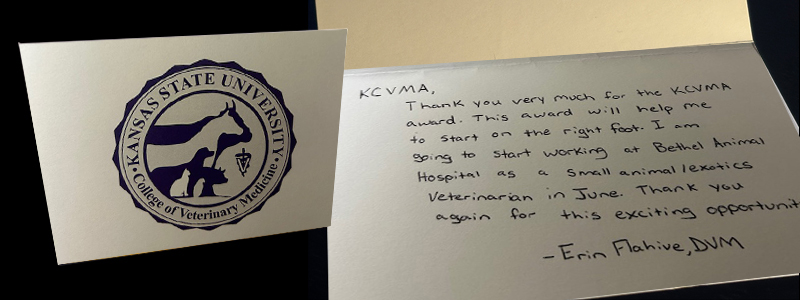 KANSAS STATE UNIVERSITY
College of Veterinary Medicine
KCVMA,
Thank you very much for the KCVMA
award. This award will help me
to start on the right foot. I am
going to start working at Bethel Animal
Hospital as a small animal/exotics
Veterinarian in June. Thank you
again for this exciting opportunit
-Erin Flahive, DVM